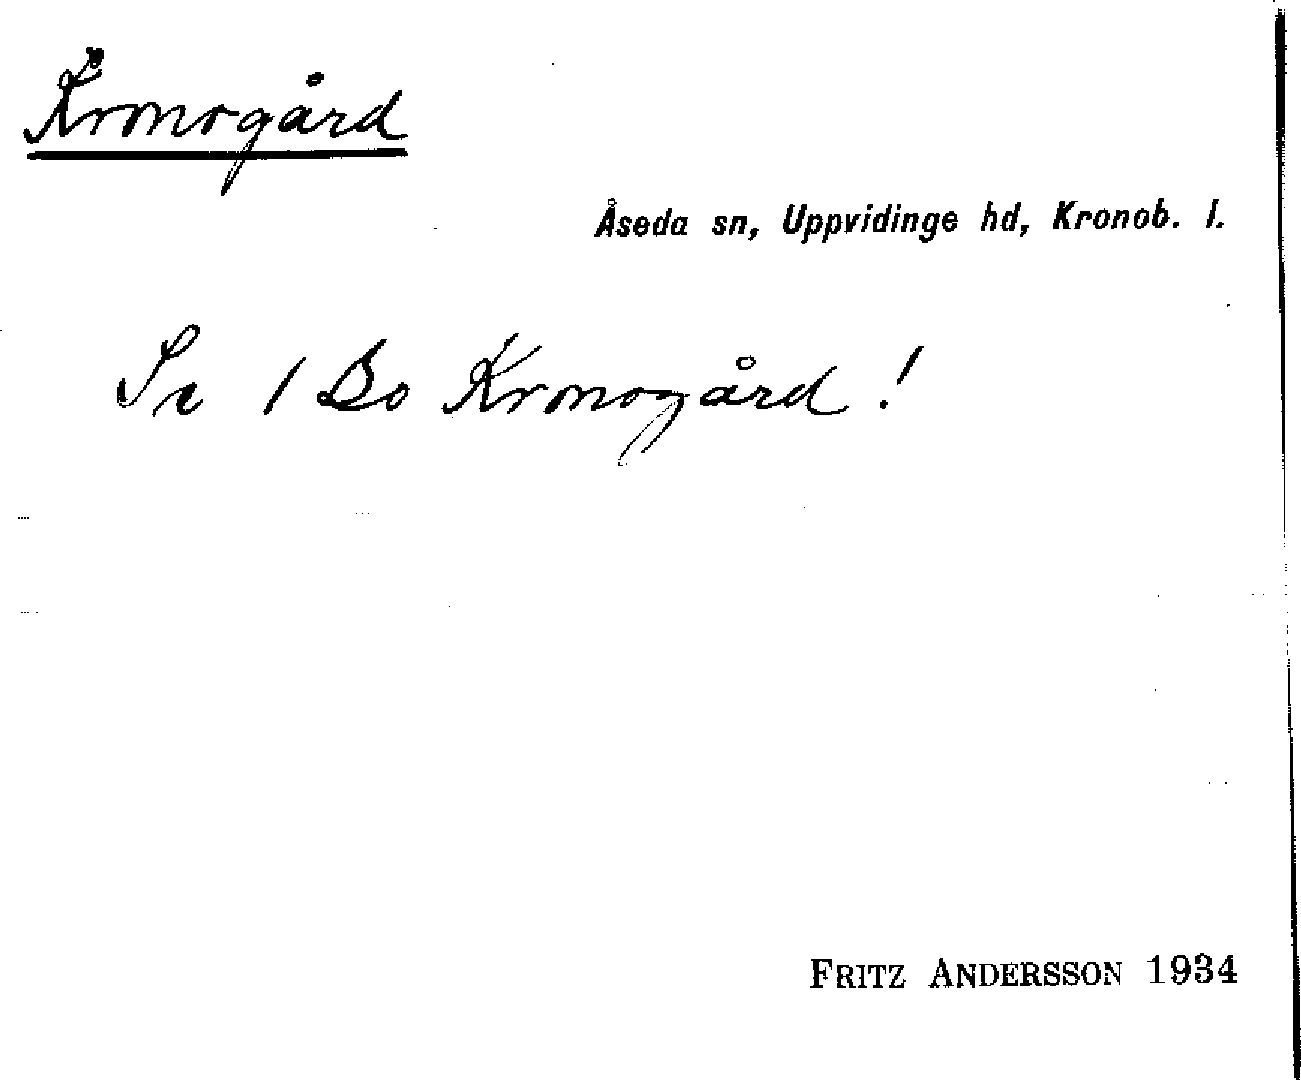 Kronogård
Åseda sn, Uppvidinge hd, Kronob. l.
Se 1 Bo Kronogård!
FRITZ ANDERSSON 1934